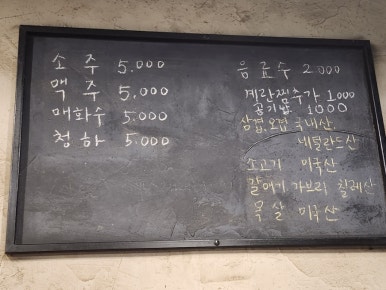 소주 5,000
맥주 5,000
매화수 5,000
청하 5,000
음료수 2000
계란찜추가 1000
공기밥 1000
삼겹,오겹 국내산,
네덜란드산
소고기 미국산
갈매기 가브리 칠레산
목살 미국산